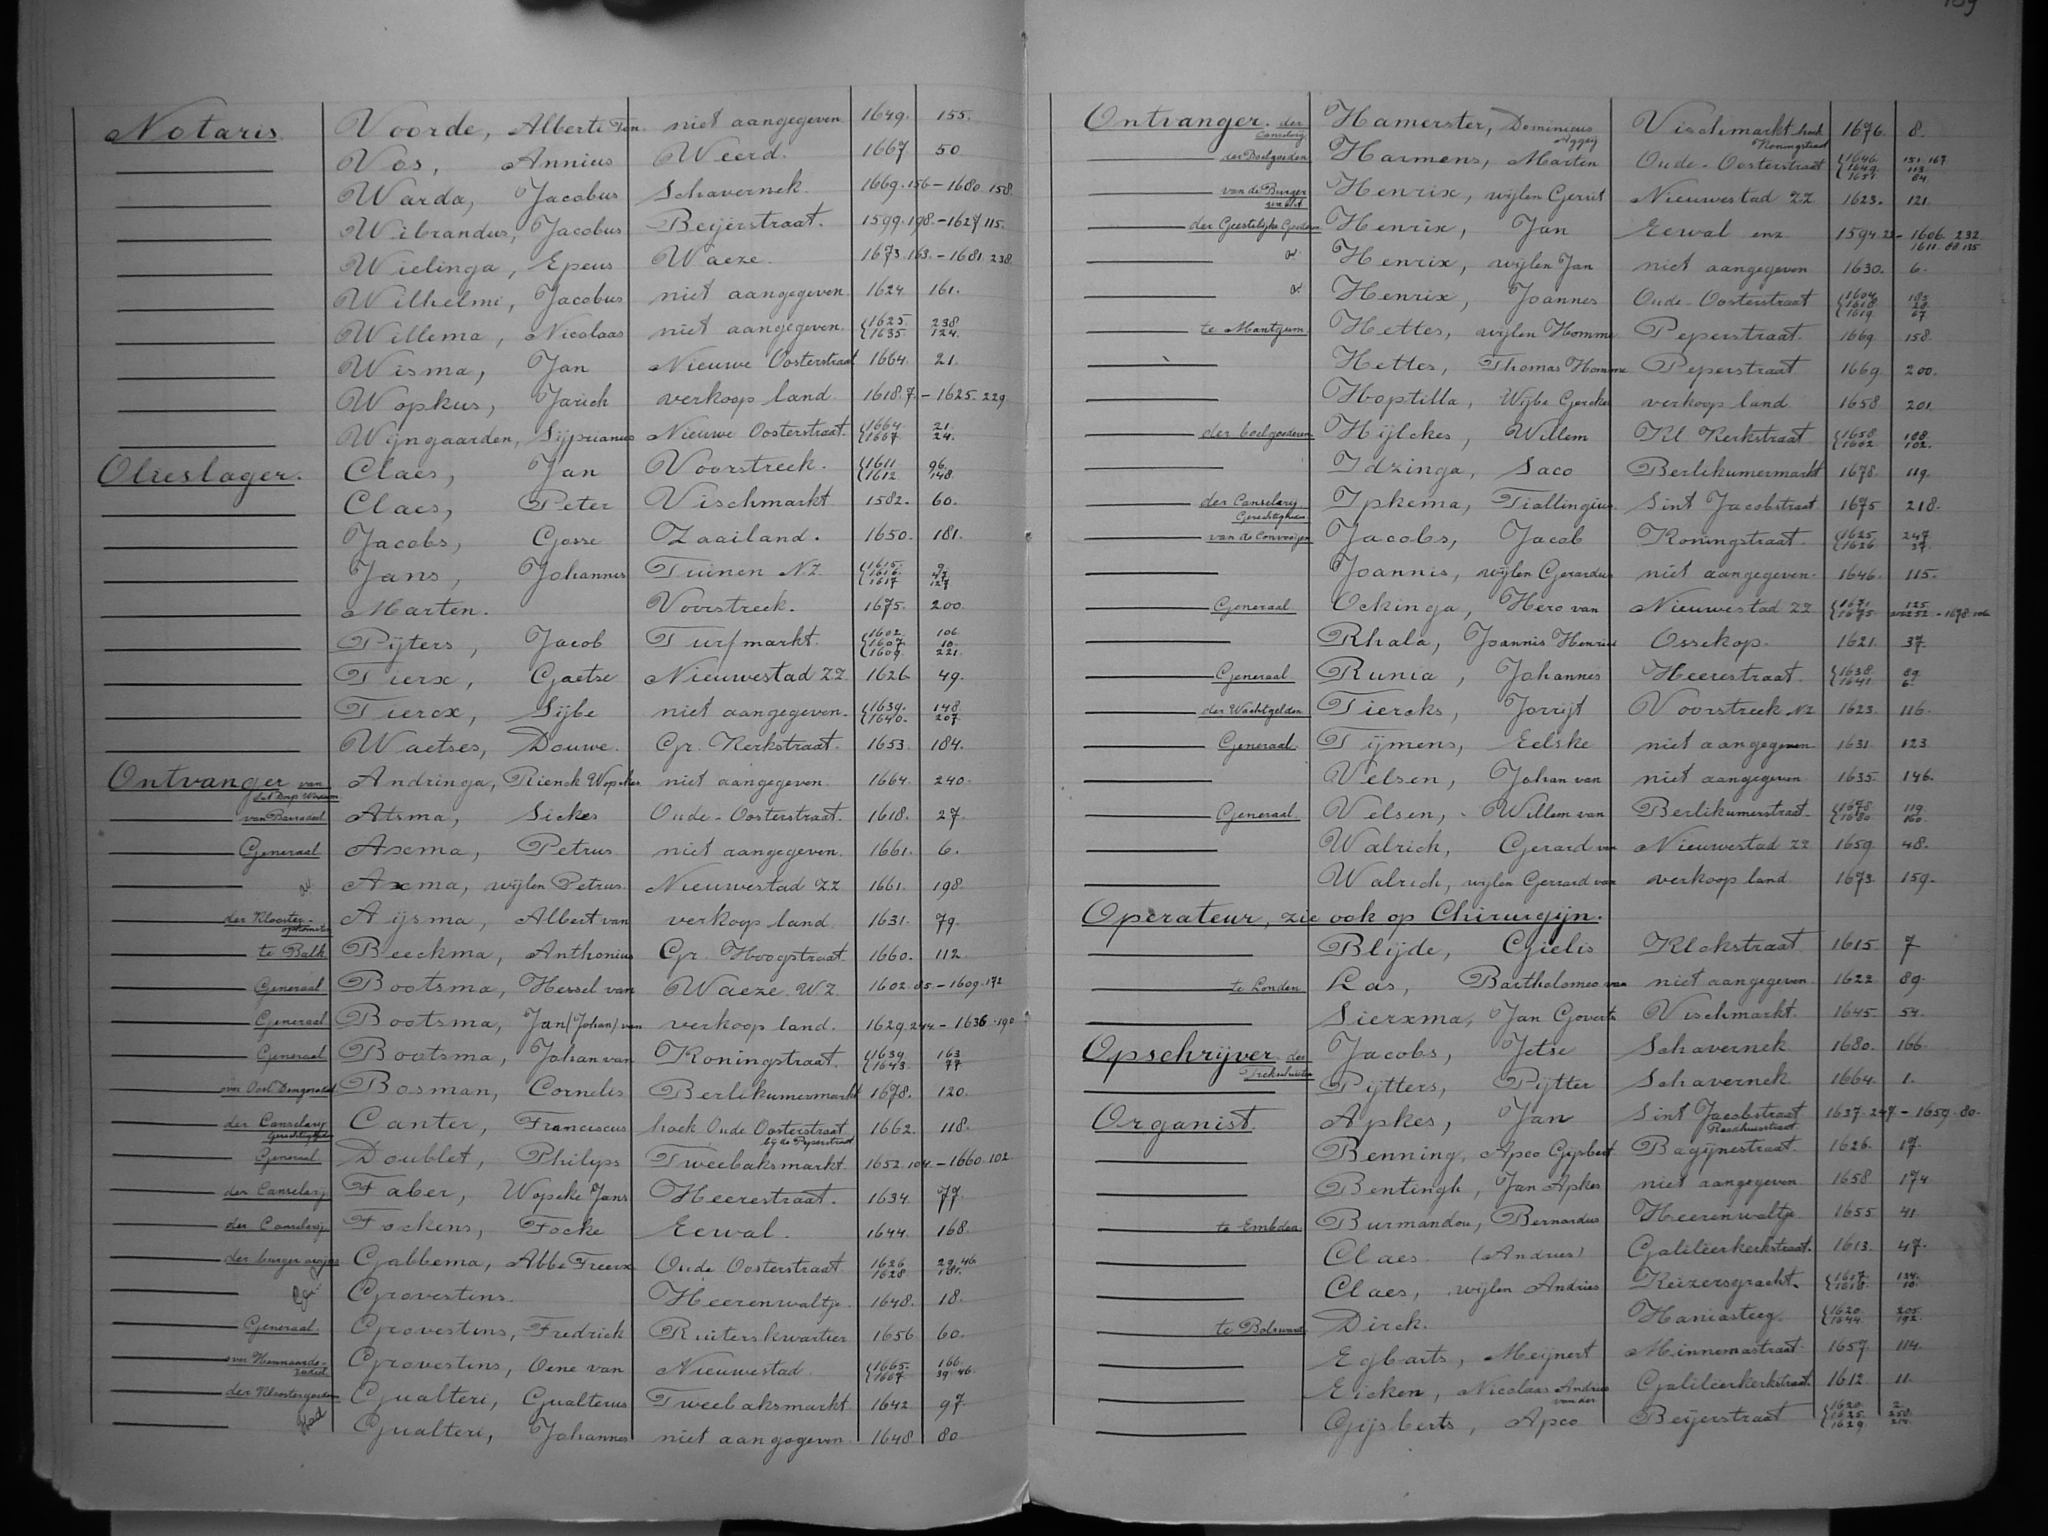 Notaris. Voorde, Alberti Ten niet aangegeven 1649. 155.
Vos, Annius Weerd. 1667 50
Warda, Jacobus Schavernek. 1669.156 - 1680.158.
Wibrandus, Jacobus Beijerstraat. 1599.198. - 1627.115.
Wielinga, Epeus Waeze. 1673.163. - 1681.238.
Wilhelmi, Jacobus niet aangegeven. 1624. 161.
Willema, Nicolaas niet aangegeven. 1625 238
1635 124.
Wisma, Jan Nieuwe Oosterstraat 1664. 21.
Wopkus, Jarich verkoop land. 1618.7. - 1625.229
Wijngaarden, Sijprianus Nieuwe Oosterstraat. 1664. 21.
1667 24.
Olieslager. Claes, Jan Voorstreek. 1611 96.
1612 148.
Claes, Peter Vischmarkt 1582. 60.
Jacobs, Gosse Zaailand. 1650. 181.
Jans, Johannes Tuinen NZ. 1615. 9.
1616.
1617 127
Marten. Voorstreek. 1675. 200.
Pijters, Jacob Turfmarkt. 1602. 106.
1607. 10.
1609. 221.
Tierx, Gaetse Nieuwestad ZZ. 1626 49.
Tiercx, Sijbe niet aangegeven. 1639. 148.
1640. 207.
Waetses, Douwe. Gr. Kerkstraat. 1653. 184.
Ontvanger van Andringa, Rienck Wopckes niet aangegeven. 1664. 240.
het Dorp
van Barradeel Atsma, Sickes Oude-Oosterstraat. 1618. 27.
Generaal Axma, Petrus niet aangegeven. 1661. 6.
Axma, wijlen Petrus. Nieuwestad ZZ 1661. 198.
der Klooster- Aijsma, Albert van verkoop land. 1631. 79.
opkomsten
te Balk Beeckma, Anthonius Gr. Hoogstraat 1660. 112.
Generaal Bootsma, Hessel van Waeze. WZ. 1602.85 - 1609.172
Generaal Bootsma, Jan (Johan) van verkoop land. 1629.244 - 1636.190
Generaal Bootsma, Johan van Koningstraat. 1639. 163
1643. 77
over Oost Dongeradeel Bosman, Cornelis Berlikumermarkt 1678. 120.
der Canselarij Canter, Franciscus hoek Oude Oosterstraat 1662. 118.
Gerechtigheden bij de Peperstraat
Generaal Doublet, Philips Tweebaksmarkt. 1652.104. - 1660.102
der Canselarij Faber, Wopcke Jans Heerestraat. 1634. 77.
der Canselarij Fockens, Focke Eewal. 1644. 168.
der burger Gabbema, Abbe Freerx Oude Oosterstraat. 1626 29.46.
1628 181.
Grovestins. Heerenwaltje. 1648. 18.
Generaal Grovestins, Fredrick Ruiterskwartier 1656 60.
over Hennaarde- Grovestins, Oene van Nieuwestad. 1665. 166.
radeel 1667 39 46.
der Kloostergoederen Gualteri, Gualterus Tweebaksmarkt 1642 97.
Gualteri, Johannes niet aangegeven 1648 80
Ontvanger. der Hamerster, Dominicus Vischmarkt hoek 1676. 8.
Canselarij Aggeij Koningstraat
der Boelgoederen Harmens, Marten Oude-Oosterstraat 1646. 151.167.
1649. 113.
1651 84.
van de Burger Henrix, wijlen Gerrit Nieuwestad ZZ 1623. 121.
wacht
der Geestelijke Goederen Henrix, Jan Eewal enz 1594.23 - 1606.232.
1611.68.135
Henrix, wijlen Jan niet aangegeven 1630. 6.
Henrix, Joannes Oude-Oosterstraat 1604. 185
1618 29.
1619. 67.
te Mantgum. Hettes, wijlen Homme Peperstraat. 1669 158.
Hettes, Thomas Homme Peperstraat 1669. 200.
Hoptilla, Wijbe Gerckes verkoop land 1658 201.
der boelgoederen Hijlckes, Willem Kl. Kerkstraat 1658 108
1662 102.
Idzinga, Saco Berlikumermarkt 1678. 119.
der Canselarij Ipkema, Tiallingius. Sint Jacobstraat 1675 218.
Gerechtigheden
van de Convooijen Jacobs, Jacob Koningstraat. 1625 247
1626 37.
Joannis, wijlen Gerardus niet aangegeven. 1646. 115.
Generaal Ockinga, Hero van Nieuwestad ZZ 1671 125
1675 252 - 1678.106
Rhala, Joannis Henrici Ossekop. 1621. 37.
Generaal Runia, Johannes Heerestraat. 1638. 89
1641. 6.
der Wachtgelden Tiercks, Jorrijt Voorstreek NZ 1623. 116.
Generaal. Tijmens, Eelske niet aangegeven 1631. 123.
Velsen, Johan van niet aangegeven 1635. 146.
Generaal. Velsen, Willem van Berlikumerstraat. 1678 119.
1680 160.
Walrich, Gerard van Nieuwestad ZZ 1659 48.
Walrich, wijlen Gerrard van verkoop land. 1673. 159.
Operateur, zie ook op Chirurgijn.
Blijde, Gielis Klokstraat. 1615 7
te Londen Las, Bartholomeo van niet aangegeven. 1622 89.
Sierxma, Jan Goverts Vischmarkt. 1645. 54.
Opschrijver. der Jacobs, Jetse Schavernek 1680. 166.
Trekschuiten Pijtters, Pijtter Schavernek 1664. 1.
Organist. Apkes, Jan Sint Jacobstraat 1637.247 - 1659.80.
Raadhuisstraat.
Benning, Apco Gijsbert Bagijnestraat. 1626. 17.
Bentingh, Jan Apkes niet aangegeven 1658. 174.
te Embden Burmandou, Bernardus Heerenwaltje 1655 41
Claes. (Andries) Galileërkerkstraat. 1613. 47.
Claes, wijlen Andries Keizersgracht. 1617. 134.
1618. 10.
te Bolsward Dirck. Haniasteeg. 1620. 205.
1644. 192.
Egbarts, Meijnert Minnemastraat. 1657. 114.
Eicken, Nicolaas Andries Galileërkerkstraat. 1612 11.
van der
Gijsberts, Apco Beijerstraat 1620. 2.
1625. 250.
1629.